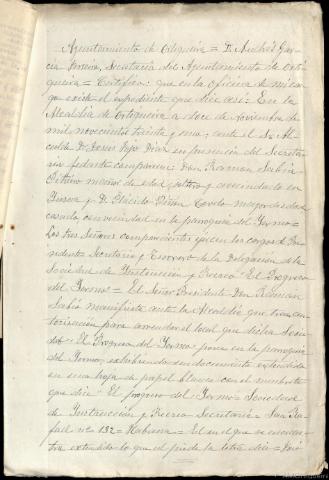 Ayuntamiento de Ortigueira = D. Andrés Gar-
cia Pereira, Secretario del Ayuntamiento de Orti-
gueira = Certifico: que en la oficina de mi car-
go existe el expediente que dice así: En la
Alcaldia de Ortigueira a doce de Noviembre de
mil novecientos treinta y uno; ante el Sr. Al-
calde D. Daniel Díaz en presencia del Secreta-
rio fedante comparecen: Don Roman Sabin
mayor de edad soltero y avecindado en
y D. Placido Piñon mayor de edad
casado con vecindad en la parroquia del Yermo =
Los tres Señores comparecientes ejercen los cargos de Pre-
sidente, Secretario y Tesorero de la Delegacion de la
Sociedad de Instruccion y Recreo "El Progreso
del Yermo" = El Señor Presidente Don Roman
Sabin manifiesta ante la Alcaldia que tiene au-
torizacion para arrendar el local que dicha Socie-
dad "El Progreso del Yermo" posee en la parroquia
del Yermo, exhibiendo un documento extendido
en una hoja de papel blanco con el membrete
que dice "El progreso del Yermo = Sociedad
de Instruccion y Recreo Secretaría = San Ra-
fael nº 132 = Habana = En el que se encuen-
tra extendido lo que al pié de la letra dice =